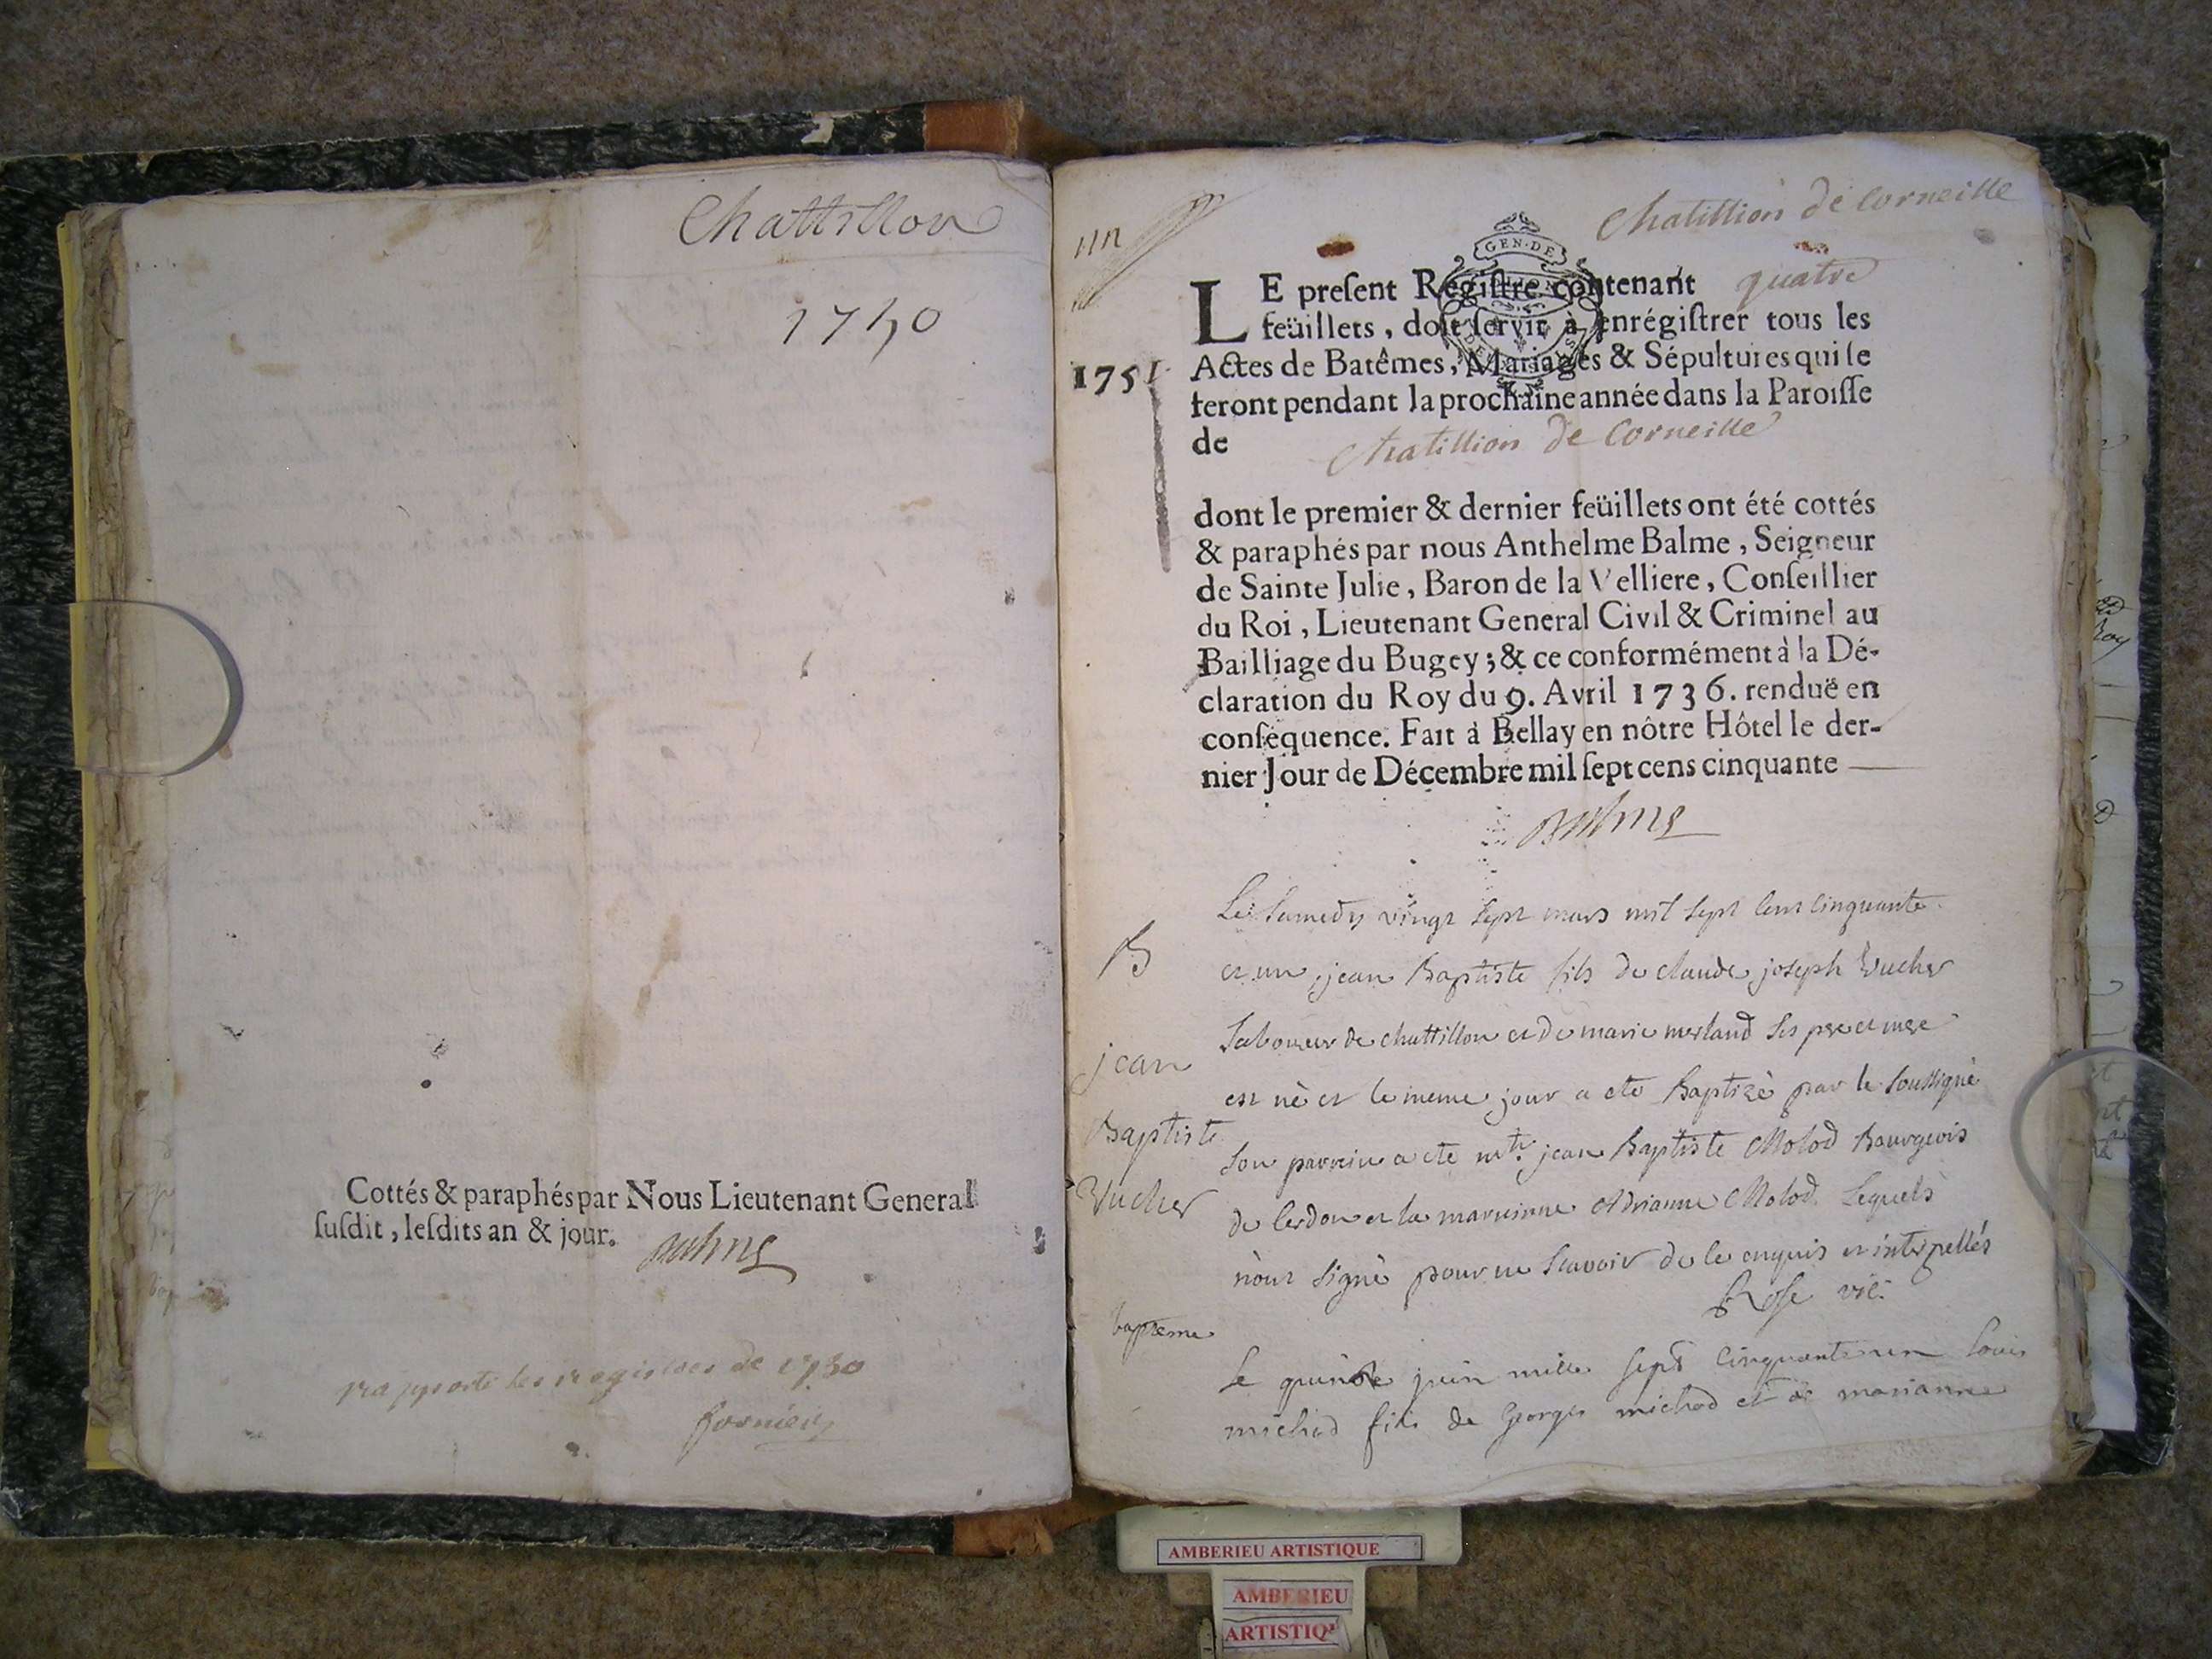 Chattillon
1750
Cottés & paraphés par Nous Lieutenant General
susdit, lesdits an & jour.
Balme
rapporté les registres de 1750
un
Chatillion de Corneille
GEN·DE
LE present Registre contenant quatre
feüillets, doit servir à enrégistrer tous les
1751
Actes de Batêmes, Mariages & Sépultures qui se
feront pendant la prochaine année dans la Paroisse
de Chatillion de Corneille
dont le premier & dernier feüillets ont été cottés
& paraphés par nous Anthelme Balme, Seigneur
de Sainte Julie, Baron de la Velliere, Conseillier
du Roi, Lieutenant General Civil & Criminel au
Bailliage du Bugey; & ce conformément à la Dé-
claration du Roy du 9. Avril 1736. renduë en
conséquence. Fait à Bellay en nôtre Hôtel le der-
nier Jour de Décembre mil sept cens cinquante
Balme
B
jean
Baptiste
Vucher
Le Samedy vingt sept mars mil sept cent cinquante
et un, jean Baptiste fils de claude joseph Vucher
Laboureur de chattillon et de marie merland ses pere et mere
est nè et le meme jour a ete Baptizè par le soussignè
son parrein a ete mtr. jean Baptiste Molod Bourgeois
de Cerdon et la marreinne Adrianne Molod. Lequels
n'ont signè pour ne scavoir de ce enquis et interpellés
Rose vic.
bapteme
Le quinze juin mille sept cinquante un Louis
michod fils de Georges michod et de marianne
AMBERIEU ARTISTIQUE
AMBERIEU
ARTISTIQ